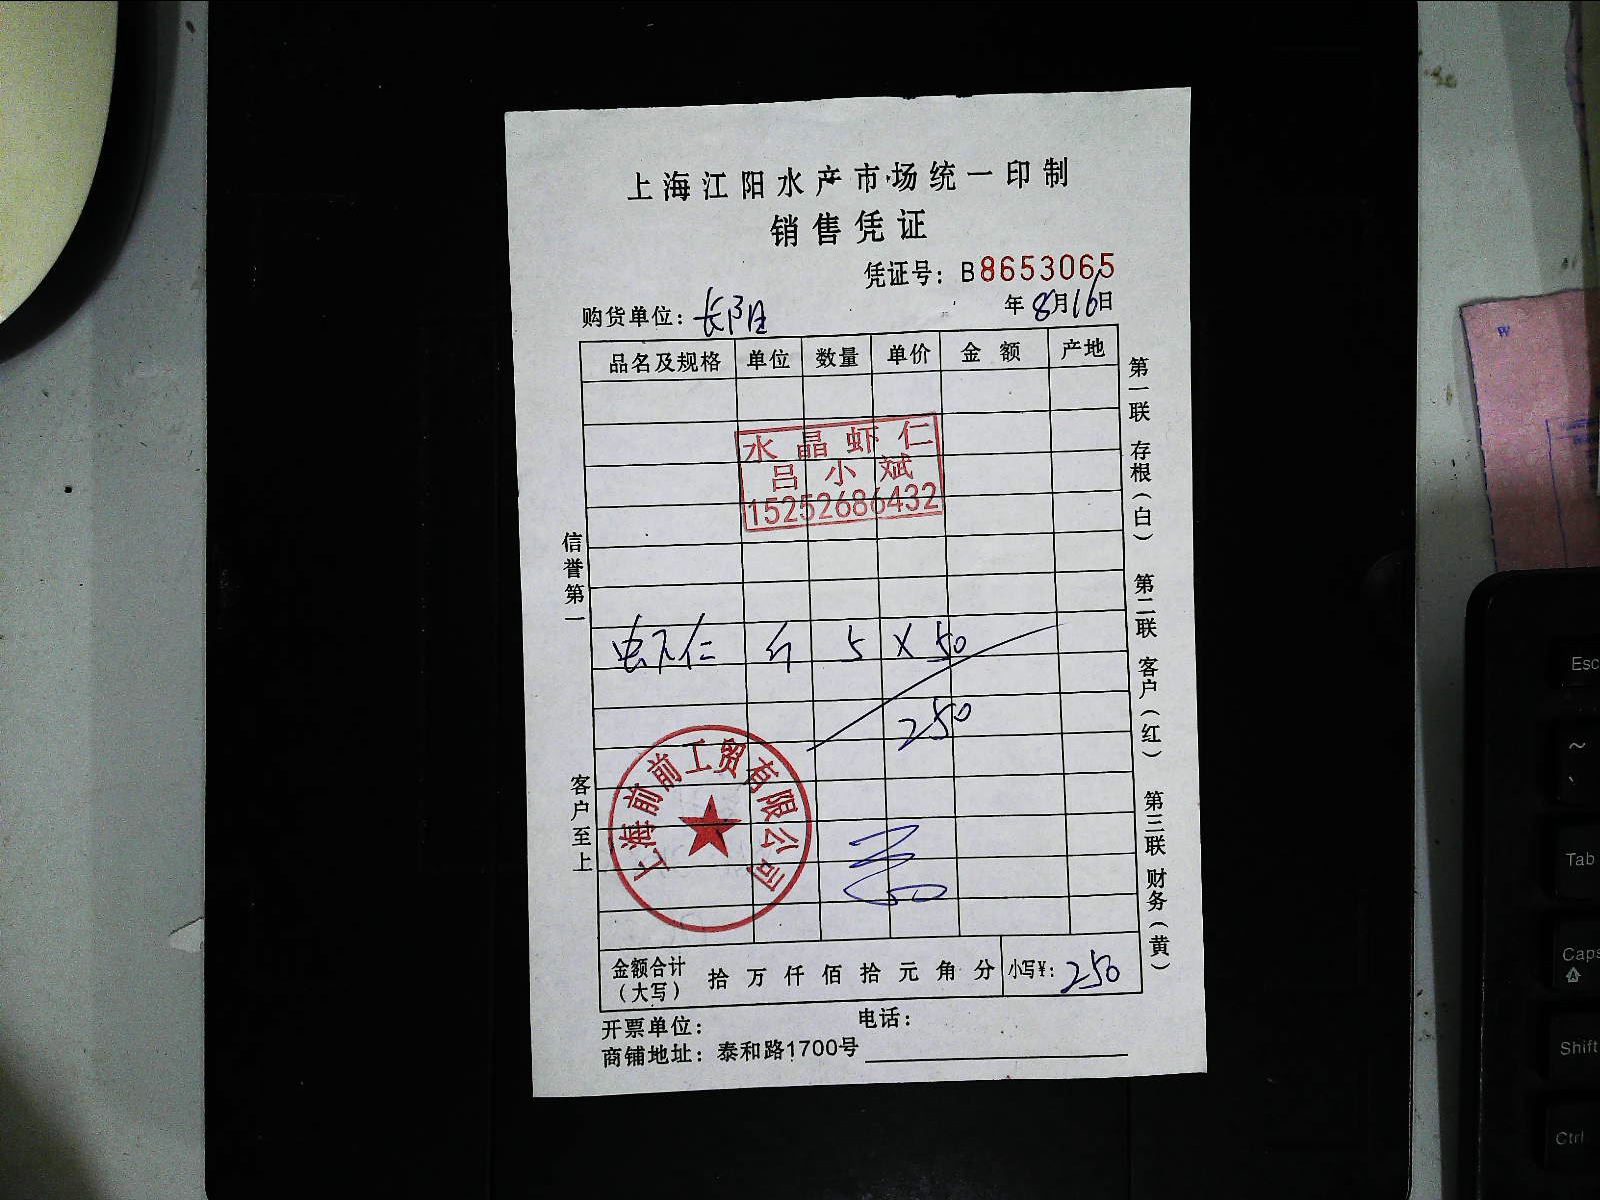 上海江阳水产市场统一印制
销售凭证
凭证号：B8653065
购货单位：长阳 年8月16日
品名及规格 单位 数量 单价 金额 产地
水晶虾仁
吕小斌
15252686432
虾仁 斤 5 × 50
250
上海前前工贸有限公司
金额合计（大写） 拾 万 仟 佰 拾 元 角 分 小写¥：250
开票单位： 电话：
商铺地址：泰和路1700号
信誉第一
客户至上
第一联 存根（白）
第二联 客户（红）
第三联 财务（黄）
Esc
~
`
Tab
Caps
Shift
Ctrl